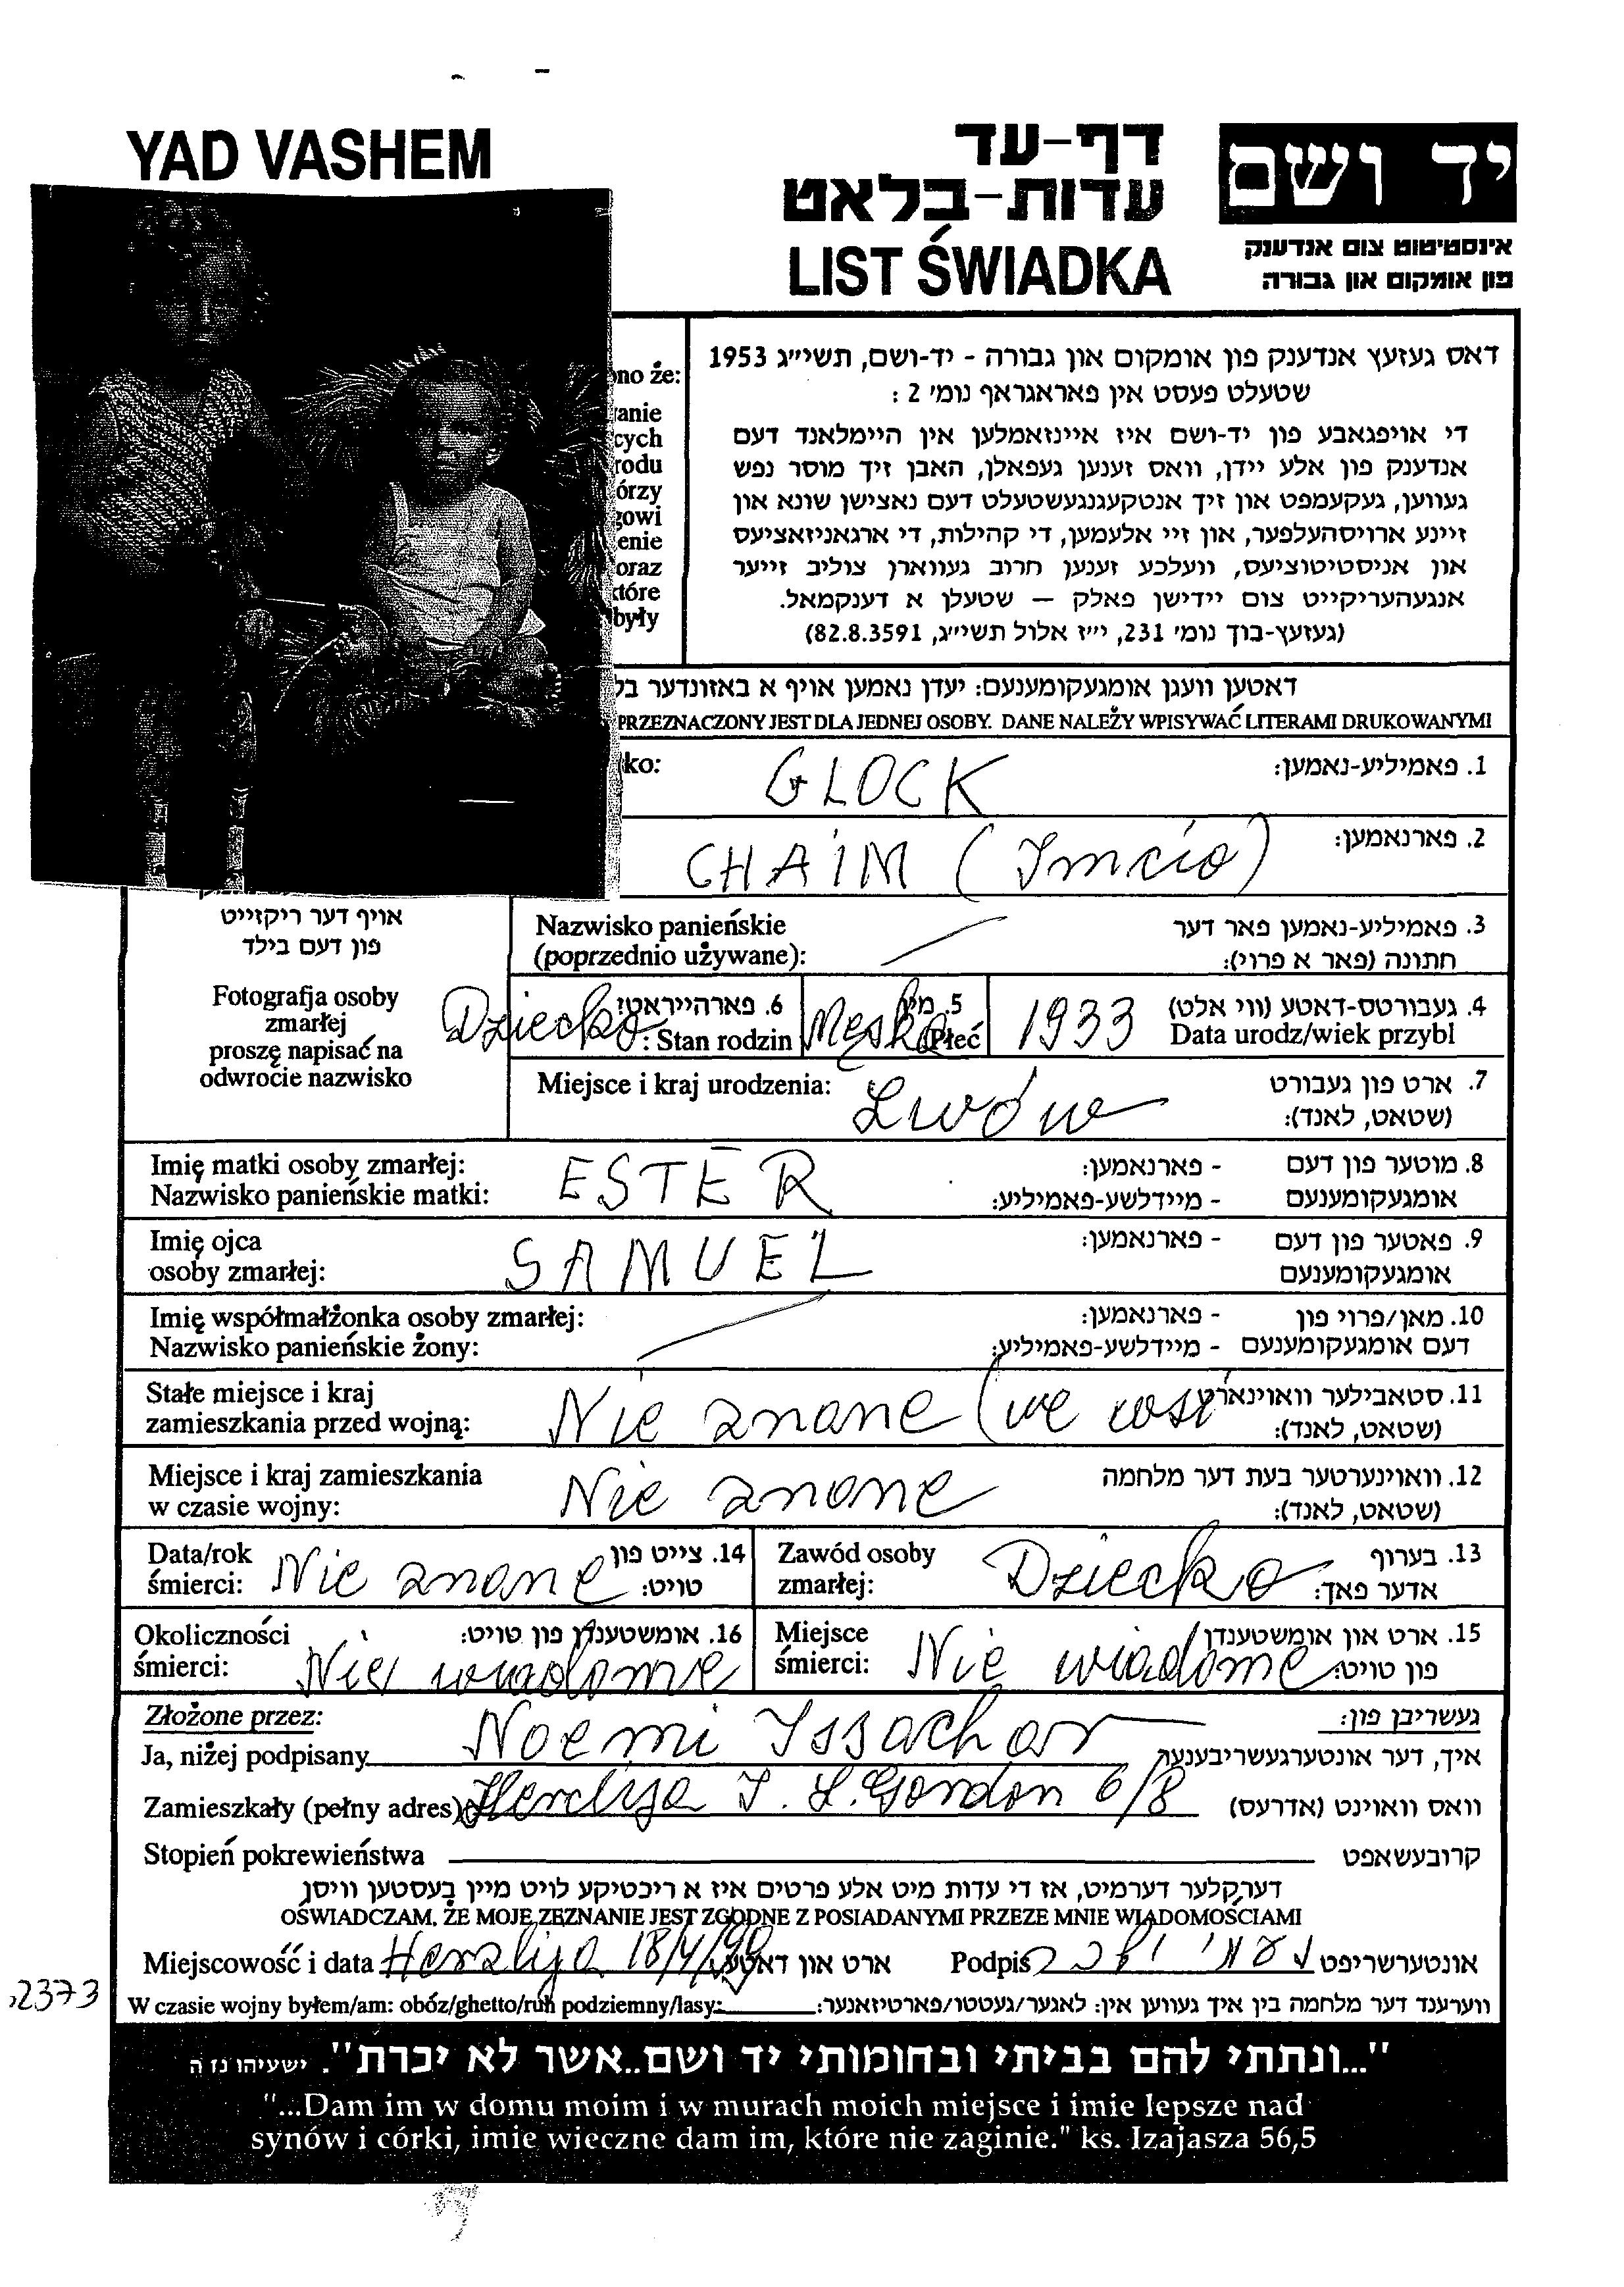 YAD VASHEM
דף-עד
עדות-בלאט
LIST ŚWIADKA
יד ושם
אינסטיטוט צום אנדענק
פון אומקום און גבורה
ono że:
anie
cych
rodu
órzy
gowi
enie
oraz
które
były
דאס געזעץ אנדענק פון אומקום און גבורה - יד-ושם, תשי״ג 1953
שטעלט פעסט אין פאראגראף נומ׳ 2 :
די אויפגאבע פון יד-ושם איז איינזאמלען אין היימלאנד דעם
אנדענק פון אלע יידן, וואס זענען געפאלן, האבן זיך מוסר נפש
געווען, געקעמפט און זיך אנטקעגנגעשטעלט דעם נאצישן שונא און
זיינע ארויסהעלפער, און זיי אלעמען, די קהילות, די ארגאניזאציעס
און אניסטיטוציעס, וועלכע זענען חרוב געווארן צוליב זייער
אנגעהעריקייט צום יידישן פאלק — שטעלן א דענקמאל.
(געזעץ-בוך נומ׳ 231, י״ז אלול תשי״ג, 82.8.3591)
דאטען וועגן אומגעקומענעם: יעדן נאמען אויף א באזונדער בל
PRZEZNACZONY JEST DLA JEDNEJ OSOBY. DANE NALEŻY WPISYWAĆ LITERAMI DRUKOWANYMI
ko: GLOCK 1. פאמיליע-נאמען:
CHAIM (Imcio) 2. פארנאמען:
אויף דער ריקזייט
פון דעם בילד
Fotografja osoby
zmarłej
proszę napisać na
odwrocie nazwisko
Nazwisko panieńskie
(poprzednio używane):
3. פאמיליע-נאמען פאר דער
חתונה (פאר א פרוי):
Dziecko 6. פארהייראט:
Stan rodzin:
Męska 5. מין
Płeć
1933 4. געבורטס-דאטע (ווי אלט)
Data urodz/wiek przybl
Miejsce i kraj urodzenia: Lwów 7. ארט פון געבורט
(שטאט, לאנד):
Imię matki osoby zmarłej: ESTER - פארנאמען: 8. מוטער פון דעם
Nazwisko panieńskie matki: - מיידלשע-פאמיליע: אומגעקומענעם
Imię ojca SAMUEL - פארנאמען: 9. פאטער פון דעם
osoby zmarłej: אומגעקומענעם
Imię współmałżonka osoby zmarłej: - פארנאמען: 10. מאן/פרוי פון
Nazwisko panieńskie żony: - מיידלשע-פאמיליע: דעם אומגעקומענעם
Stałe miejsce i kraj 11. סטאבילער וואוינארט
zamieszkania przed wojną: Nie znane (we wsi (שטאט, לאנד):
Miejsce i kraj zamieszkania 12. וואוינערטער בעת דער מלחמה
w czasie wojny: Nie znane (שטאט, לאנד):
Data/rok 14. צייט פון
śmierci: Nie znane טויט:
Zawód osoby 13. בערוף
zmarłej: Dziecko אדער פאך:
Okoliczności 16. אומשטענדן פון טויט:
śmierci: Nie wiadome
Miejsce 15. ארט און אומשטענדן
śmierci: Nie wiadome פון טויט:
Złożone przez: געשריבן פון:
Ja, niżej podpisany Noemi Issachar איך, דער אונטערגעשריבענער
Zamieszkały (pełny adres) Herclija J. L. Gordon 6/8 וואס וואוינט (אדרעס)
Stopień pokrewieństwa קרובעשאפט
דערקלער דערמיט, אז די עדות מיט אלע פרטים איז א ריכטיקע לויט מיין בעסטען וויסן
OŚWIADCZAM, ŻE MOJE ZEZNANIE JEST ZGODNE Z POSIADANYMI PRZEZE MNIE WIADOMOŚCIAMI
Miejscowość i data Herzlija 18/4/99 ארט און דאטע Podpis נעמי יששכר אונטערשריפט
2373
W czasie wojny byłem/am: obóz/ghetto/ruh podziemny/lasy: ווערענד דער מלחמה בין איך געווען אין: לאגער/געטטו/פארטיזאנער:
"...ונתתי להם בביתי ובחומותי יד ושם..אשר לא יכרת". ישעיהו נז ה
"...Dam im w domu moim i w murach moich miejsce i imie lepsze nad
synów i córki, imie wieczne dam im, które nie zaginie." ks. Izajasza 56,5